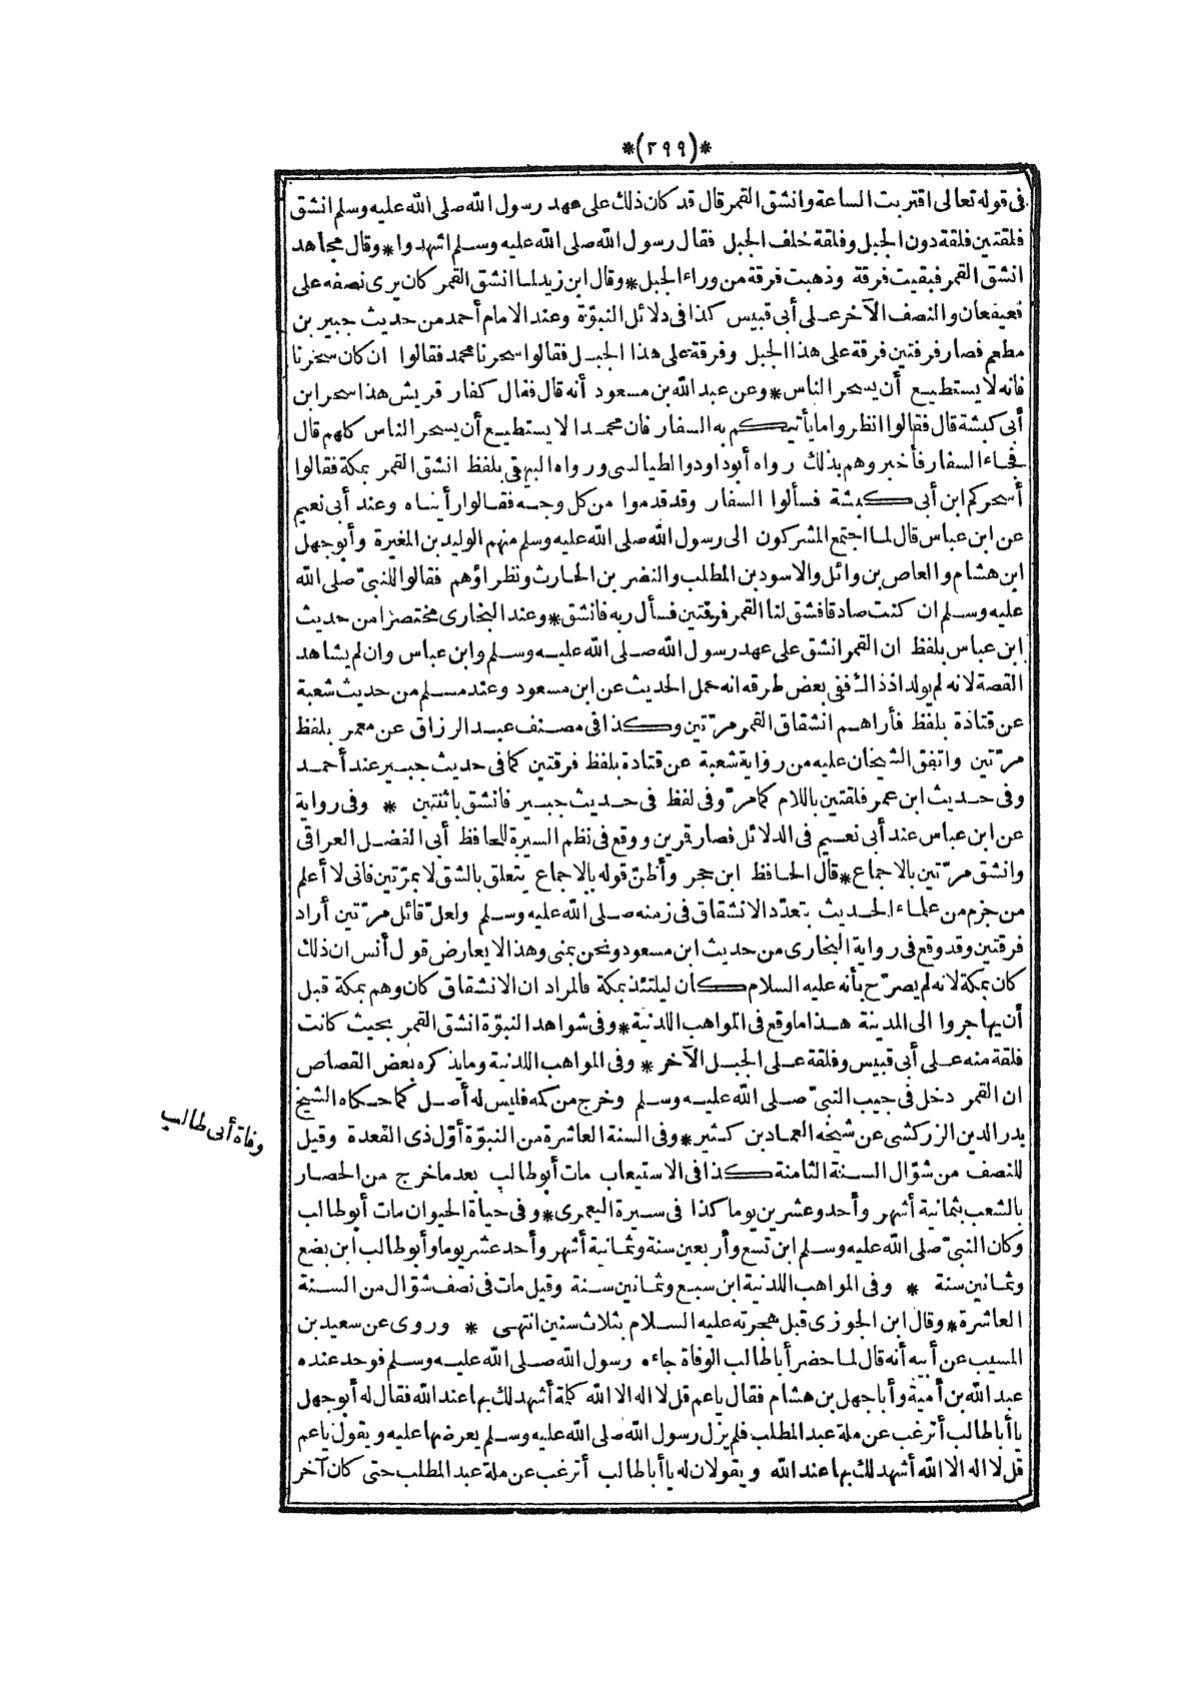 *(٢٩٩)*
فى قوله تعالى اقتربت الساعة وانشق القمر قال قد كان ذلك على عهد رسول الله صلى الله عليه وسلم انشق
فلقتين فلقة دون الجبل وفلقة خلف الجبل فقال رسول الله صلى الله عليه وسلم اشهدوا * وقال مجاهد
انشق القمر فبقيت فرقة وذهبت فرقة من وراء الجبل * وقال ابن زيد لما انشق القمر كان يرى نصفه على
قعيقعان والنصف الآخر على أبى قبيس كذا فى دلائل النبوّة وعند الامام أحمد من حديث جبير بن
مطعم فصار فرقتين فرقة على هذا الجبل وفرقة على هذا الجبل فقالوا سحرنا محمد فقالوا ان كان سحرنا
فانه لا يستطيع أن يسحر الناس * وعن عبد الله بن مسعود أنه قال فقال كفار قريش هذا سحر ابن
أبى كبشة قال فقالوا انظروا ما يأتيكم به السفار فان محمدا لا يستطيع أن يسحر الناس كلهم قال
فجاء السفار فأخبروهم بذلك رواه أبو داود الطيالسى ورواه البيهقى بلفظ انشق القمر بمكة فقالوا
أسحركم ابن أبى كبشة فسألوا السفار وقد قدموا من كل وجه فقالوا رأيناه وعند أبى نعيم
عن ابن عباس قال لما اجتمع المشركون الى رسول الله صلى الله عليه وسلم منهم الوليد بن المغيرة وأبو جهل
ابن هشام والعاص بن وائل والاسود بن المطلب والنضر بن الحارث ونظراؤهم فقالوا للنبىّ صلى الله
عليه وسلم ان كنت صادقا فشق لنا القمر فرقتين فسأل ربه فانشق * وعند البخارى مختصرا من حديث
ابن عباس بلفظ ان القمر انشق على عهد رسول الله صلى الله عليه وسلم وابن عباس وان لم يشاهد
القصة لانه لم يولد اذ ذاك ففى بعض طرقه انه حمل الحديث عن ابن مسعود وعند مسلم من حديث شعبة
عن قتادة بلفظ فأراهم انشقاق القمر مرّتين وكذا فى مصنف عبد الرزاق عن معمر بلفظ
مرّتين واتفق الشيخان عليه من رواية شعبة عن قتادة بلفظ فرقتين كما فى حديث جبير عند أحمد
وفى حديث ابن عمر فلقتين باللام كما مرّ وفى لفظ فى حديث جبير فانشق باثنتين * وفى رواية
عن ابن عباس عند أبى نعيم فى الدلائل فصار قمرين ووقع فى نظم السيرة للحافظ أبى الفضل العراقى
وانشق مرّتين بالاجماع * قال الحافظ ابن حجر وأظنّ قوله بالاجماع يتعلق بالشق لا بمرّتين فانى لا أعلم
من جزم من علماء الحديث بتعدّد الانشقاق فى زمنه صلى الله عليه وسلم ولعلّ قائل مرّتين أراد
فرقتين وقد وقع فى رواية البخارى من حديث ابن مسعود ونحن بمنى وهذا لا يعارض قول أنس ان ذلك
كان بمكة لانه لم يصرّح بأنه عليه السلام كان ليلتئذ بمكة فالمراد ان الانشقاق كان وهم بمكة قبل
أن يهاجروا الى المدينة هذا ما وقع فى المواهب اللدنية * وفى شواهد النبوّة انشق القمر بحيث كانت
فلقة منه على أبى قبيس وفلقة على الجبل الآخر * وفى المواهب اللدنية وما يذكره بعض القصاص
ان القمر دخل فى جيب النبىّ صلى الله عليه وسلم وخرج من كمه فليس له أصل كما حكاه الشيخ
بدر الدين الزركشى عن شيخه العماد بن كثير * وفى السنة العاشرة من النبوّة أوّل ذى القعدة وقيل
وفاة أبى طالب
للنصف من شوّال السنة الثامنة كذا فى الاستيعاب مات أبو طالب بعد ما خرج من الحصار
بالشعب بثمانية أشهر وأحد وعشرين يوما كذا فى سيرة اليعمرى * وفى حياة الحيوان مات أبو طالب
وكان النبىّ صلى الله عليه وسلم ابن تسع وأربعين سنة وثمانية أشهر وأحد عشر يوما وأبو طالب ابن بضع
وثمانين سنة * وفى المواهب اللدنية ابن سبع وثمانين سنة وقيل مات فى نصف شوّال من السنة
العاشرة * وقال ابن الجوزى قبل هجرته عليه السلام بثلاث سنين انتهى * وروى عن سعيد بن
المسيب عن أبيه أنه قال لما حضر أبا طالب الوفاة جاءه رسول الله صلى الله عليه وسلم فوجد عنده
عبد الله بن أميّة وأبا جهل بن هشام فقال يا عم قل لا اله الا الله كلمة أشهد لك بها عند الله فقال له أبو جهل
يا أبا طالب أترغب عن ملة عبد المطلب فلم يزل رسول الله صلى الله عليه وسلم يعرضها عليه ويقول يا عم
قل لا اله الا الله أشهد لك بها عند الله ويقولان له يا أبا طالب أترغب عن ملة عبد المطلب حتى كان آخر